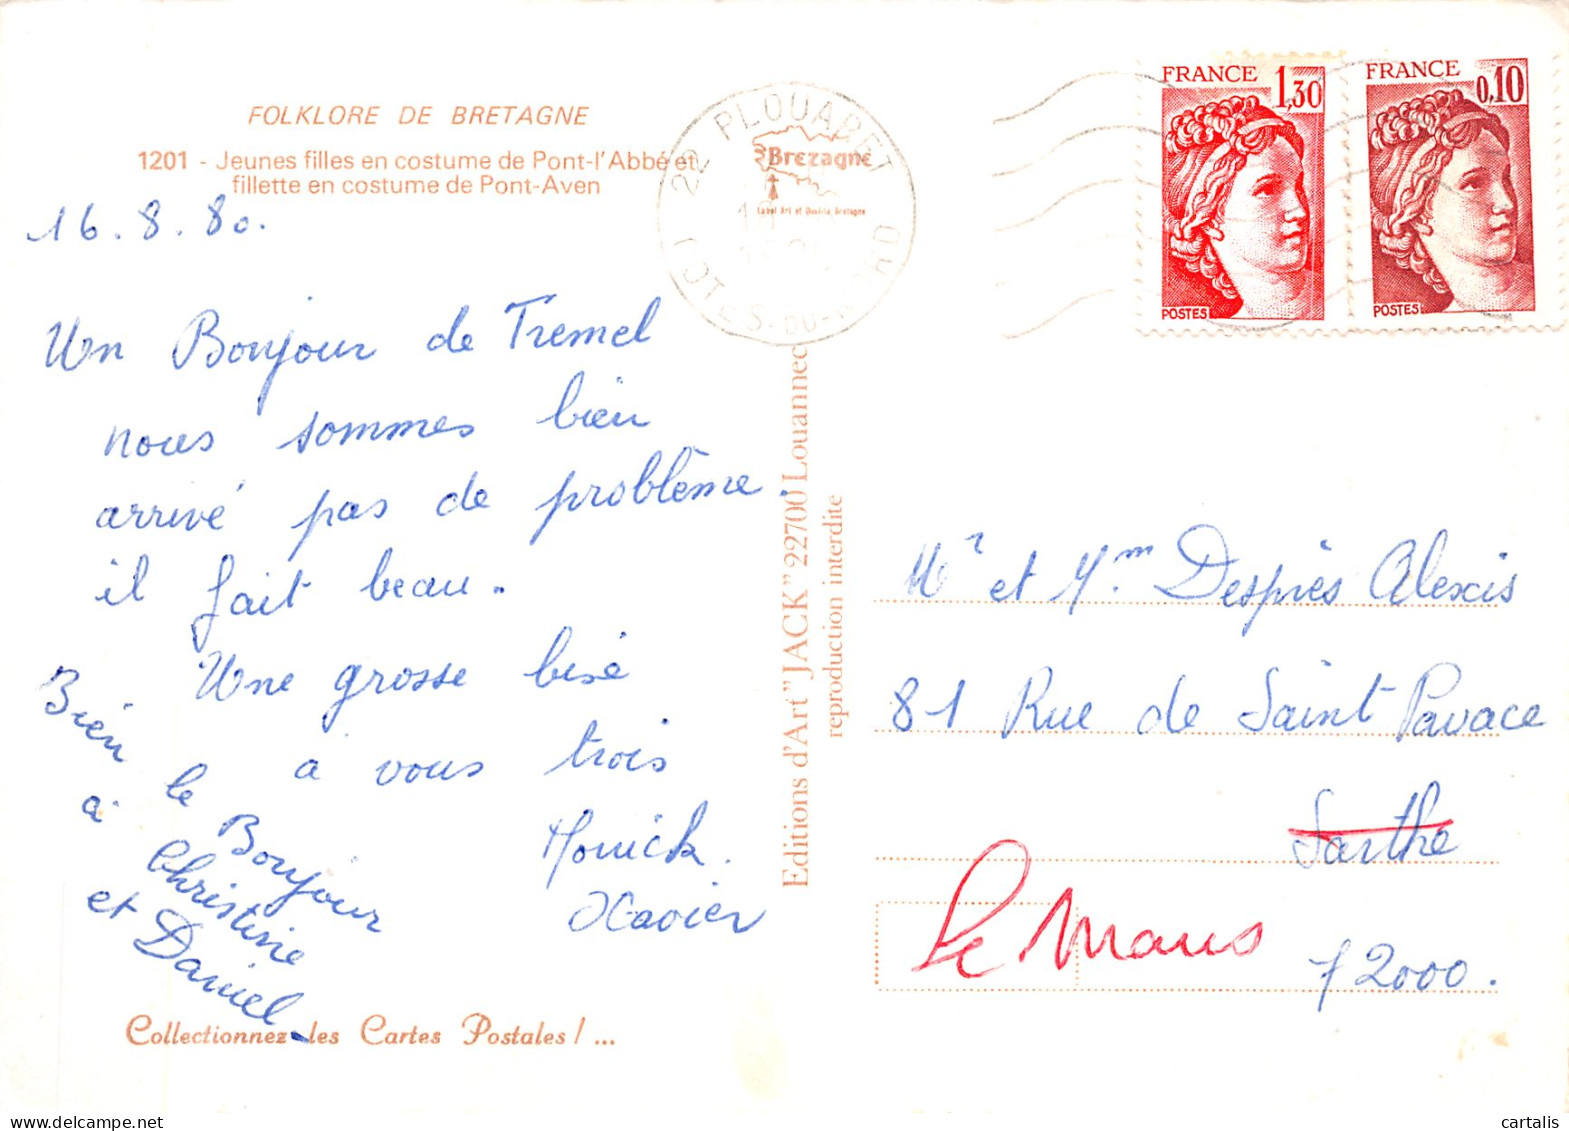 FOLKLORE DE BRETAGNE
1201 - Jeunes filles en costume de Pont-l'Abbé et
fillette en costume de Pont-Aven
16.8.80.
Un Bonjour de Tremel
nous sommes bien
arrivé pas de problème.
il fait beau.
Une grosse bise
à vous trois
Monick.
Xavier
Bien le Bonjour
à Christine
et Daniel
Collectionnez les Cartes Postales ! ...
22 PLOUARET
COTES-DU-NORD
Bretagne
Label Art et Qualité Bretagne
Editions d'Art "JACK" 22700 Louannec
reproduction interdite
FRANCE 1,30
POSTES
FRANCE 0,10
POSTES
Mr et Mm. Desprès Alexis
81 Rue de Saint Pavace
Sarthe
Le Mans
72000.
cartalis